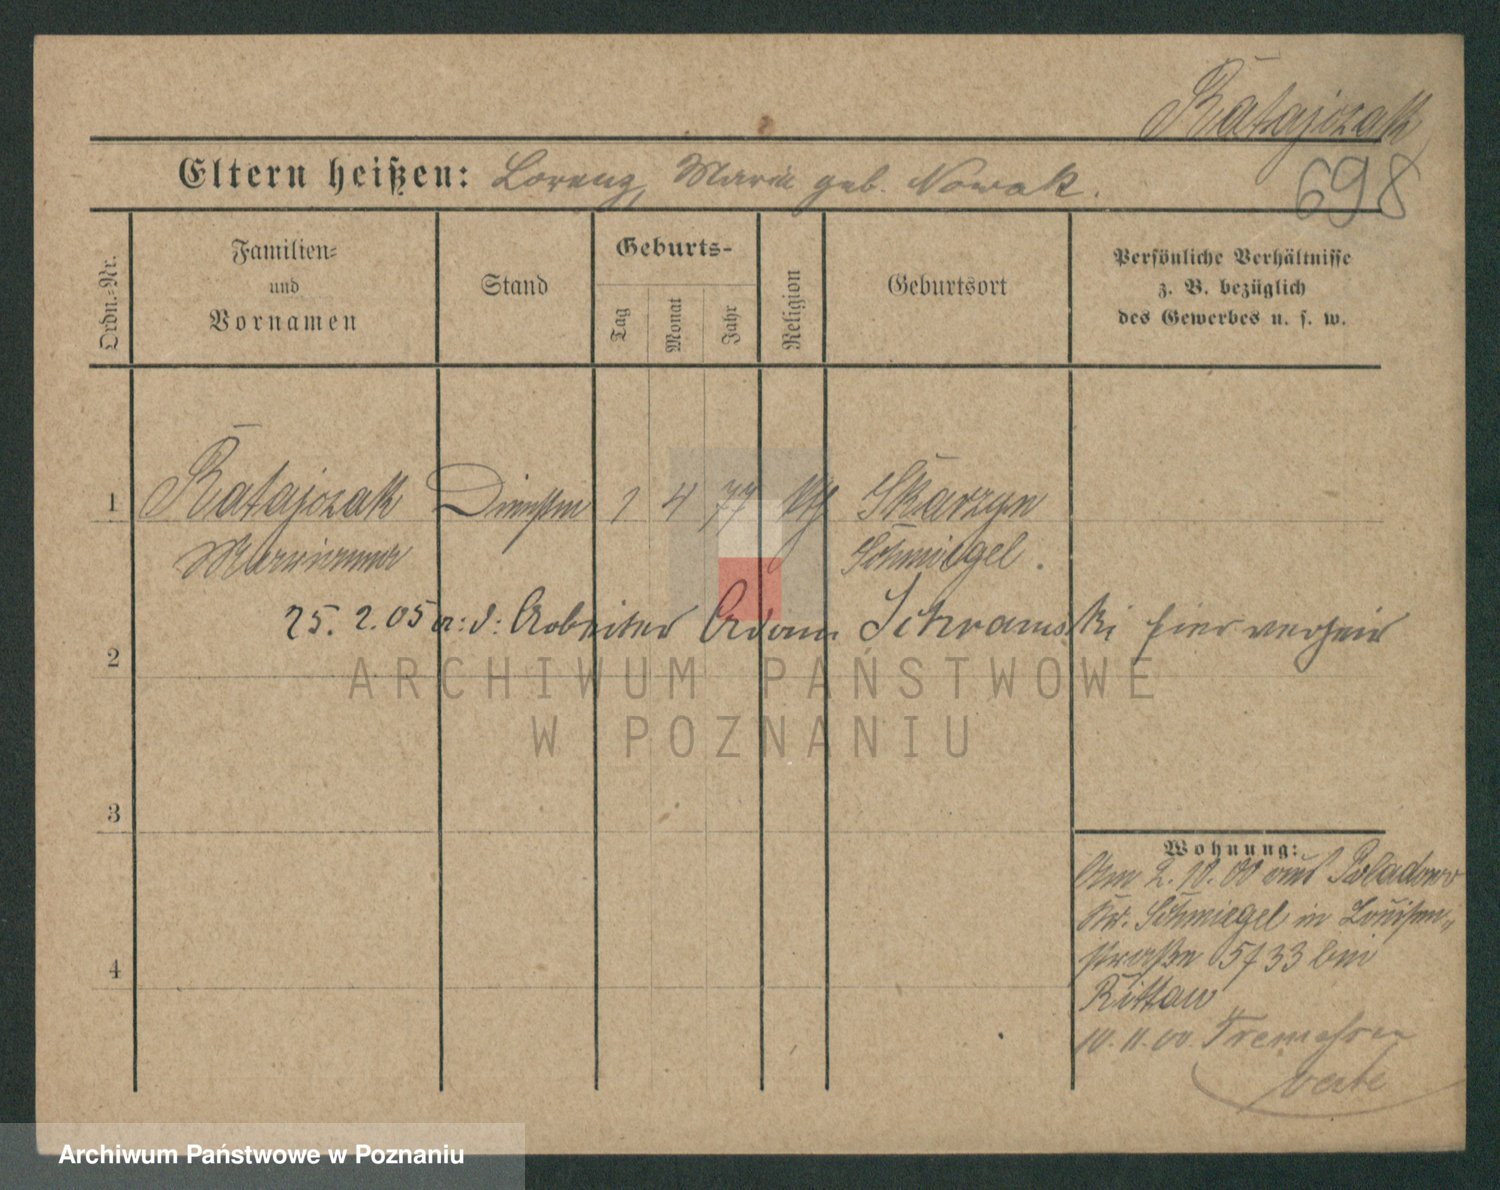 Ratajczak
Eltern heißen: Lorenz, Maria geb. Nowak.
698
Ordn.-Nr.
Familien-
und
Vornamen
Stand
Geburts-
Tag
Monat
Jahr
Religion
Geburtsort
Persönliche Verhältnisse
z. B. bezüglich
des Gewerbes u. s. w.
1 Ratajczak 1 4 77 kth Skarzyn
Marianna Schmiegel.
25. 2. 05 a: d: Arbeiter Adam Schramski hier verheir
2
ARCHIWUM PAŃSTWOWE
W POZNANIU
3
Wohnung:
Am 2. 10. 00 aus
Kr. Schmiegel in Louisen-
4 straße bei
Rittau
10. 11. 00.
verte
Archiwum Państwowe w Poznaniu